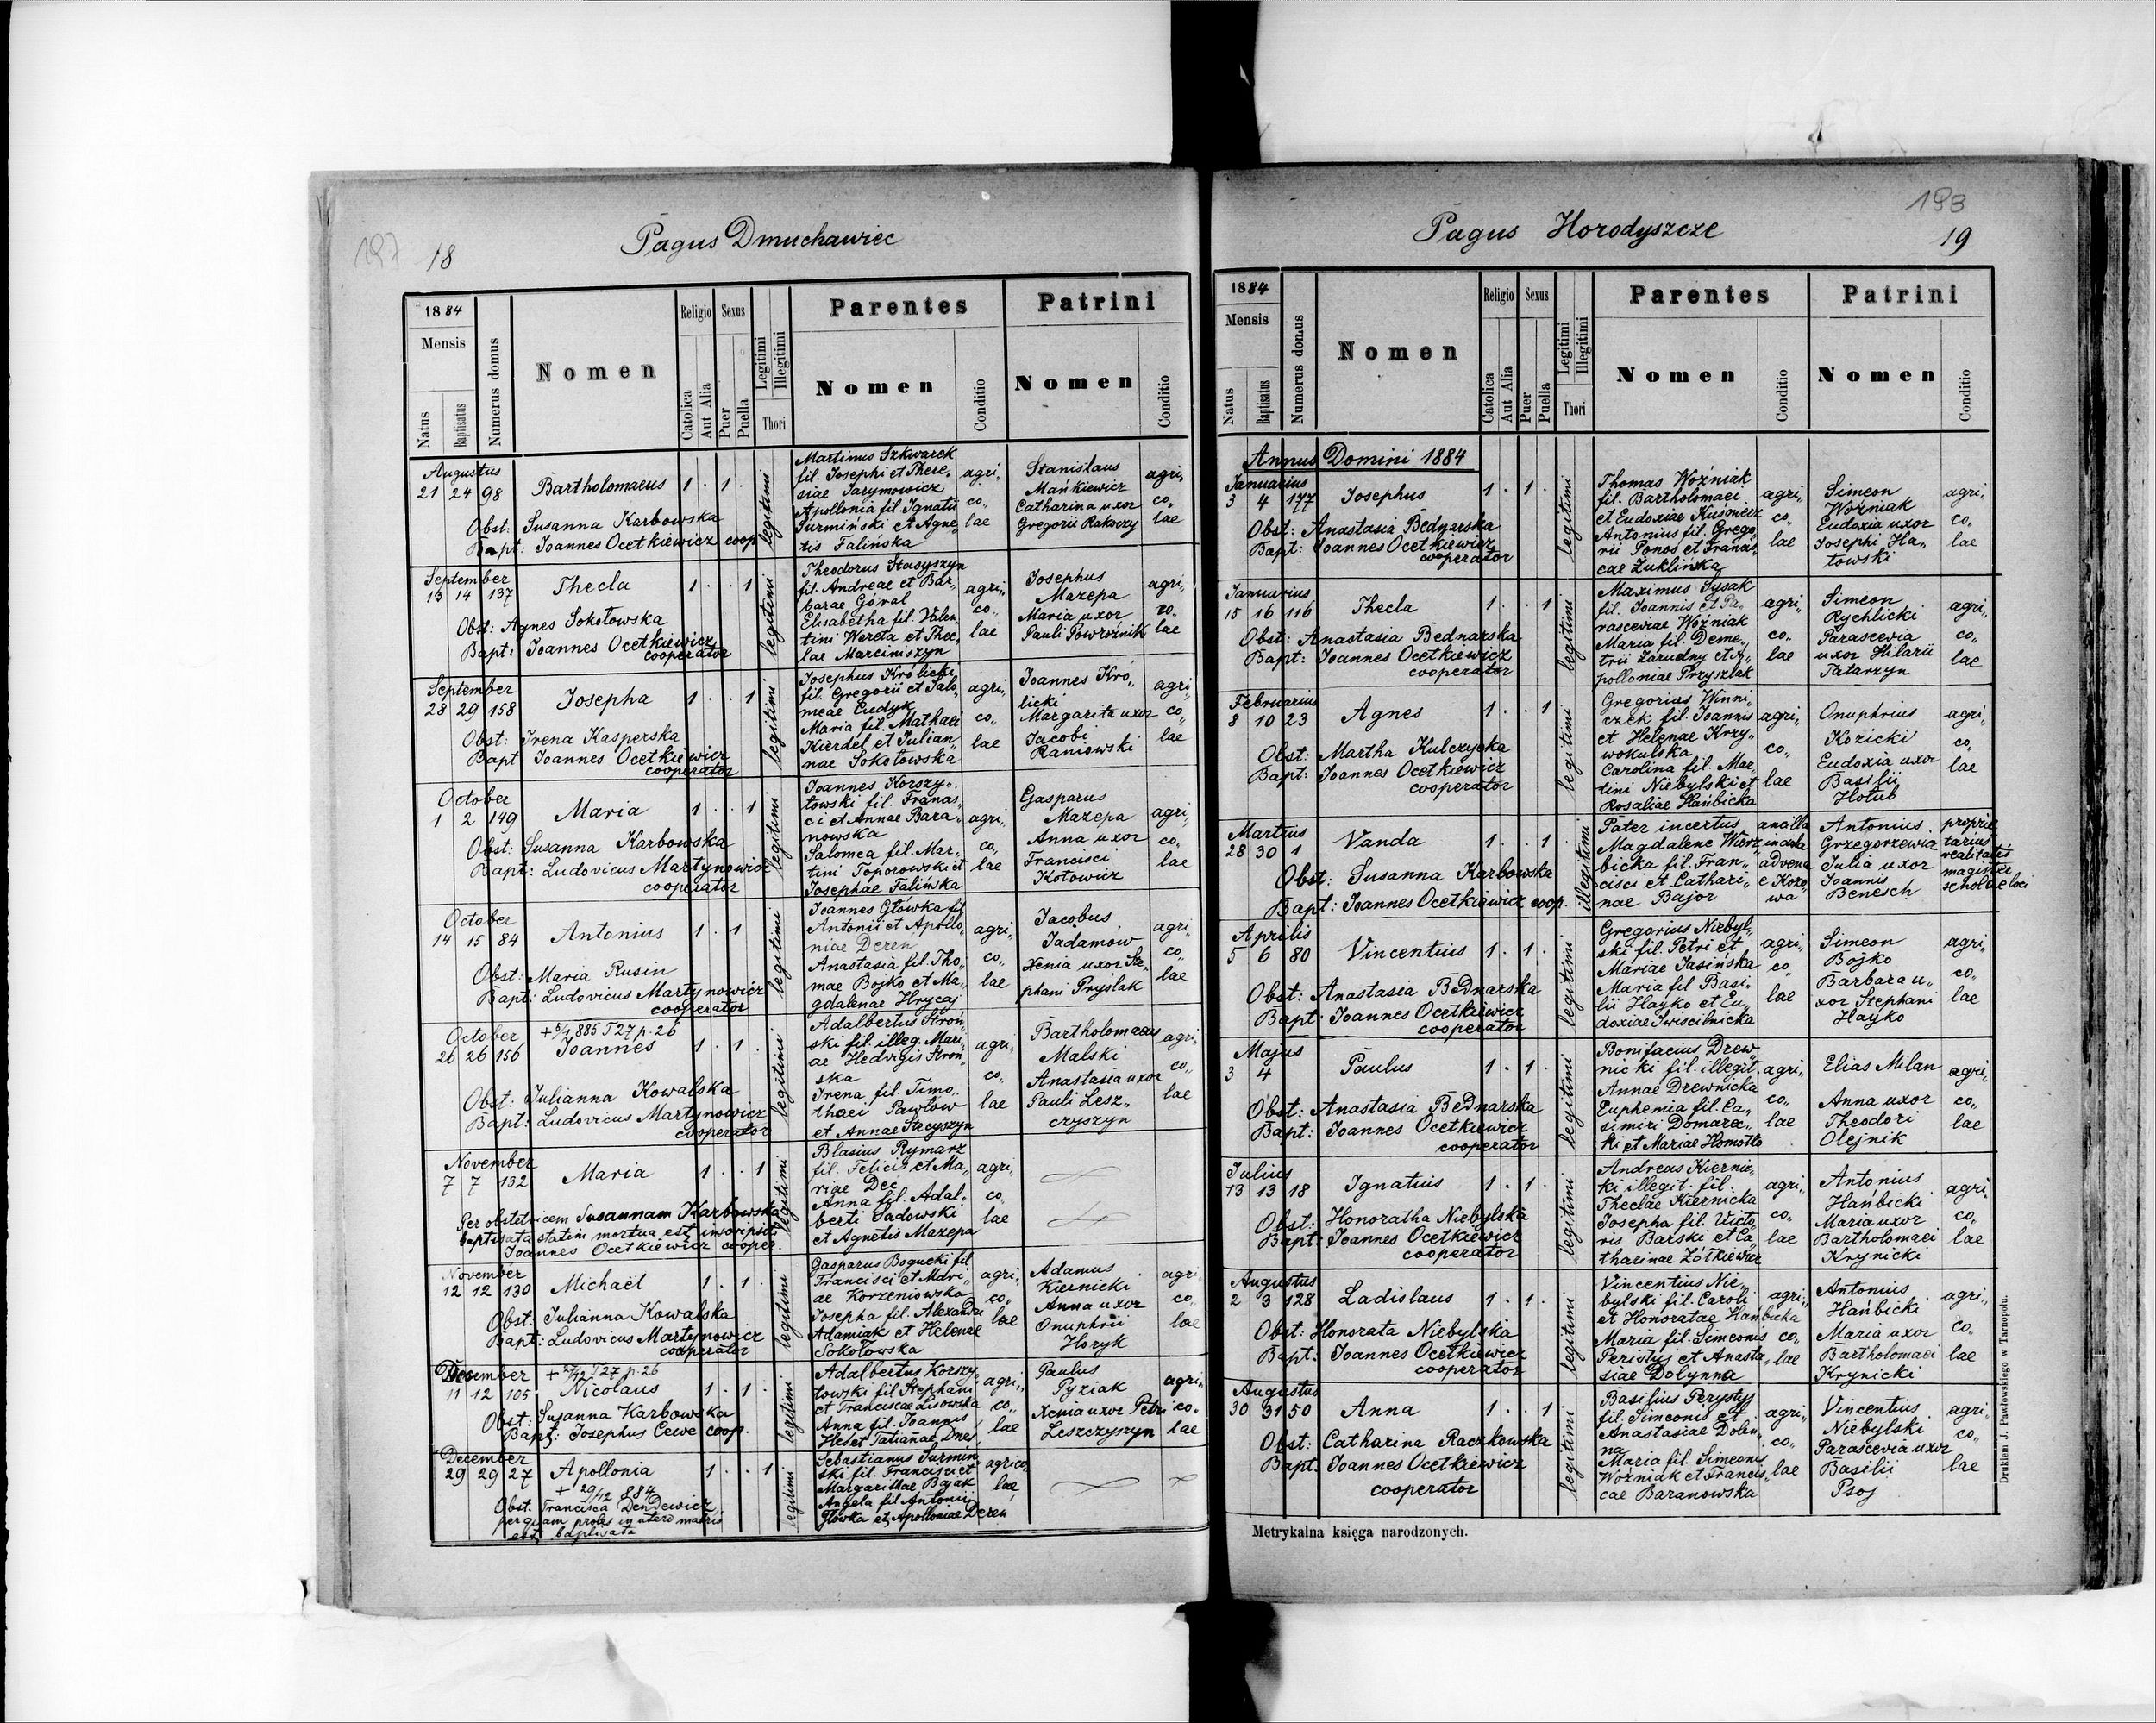 197 18
Pagus Dmuchawiec
1884
Mensis
Natus
Baptisatus
Numerus domus
Nomen
Religio
Catolica
Aut Alia
Sexus
Puer
Puella
Legitimi
Illegitimi
Thori
Parentes
Nomen
Conditio
Patrini
Nomen
Conditio
Augustus
21 24 98 Bartholomaeus 1 . 1 .
Obst: Susanna Karbowska
Bapt: Joannes Ocetkiewicz coop
legitimi
Martinus Szkwarek
fil. Josephi et There„
siae Jarymowicz
Apollonia fil. Ignatii
Surmiński et Agne„
tis Falińska
agri„
co„
lae
Stanislaus
Mańkiewicz
Catharina uxor
Gregorii Rakoczy
agri„
co„
lae
September
13 14 137 Thecla 1 . . 1
Obst: Agnes Sokołowska
Bapt: Joannes Ocetkiewicz
cooperator
legitimi
Theodorus Stasyszyn
fil. Andreae et Bar„
barae Góral
Elisabetha fil. Valen„
tini Wereta et Thec„
lae Marciniszyn
agri„
co„
lae
Josephus
Mazepa
Maria uxor
Pauli Powroźnik
agri„
co.
lae
September
28 29 158 Josepha 1 . . 1
Obst: Irena Kasperska
Bapt Joannes Ocetkiewicz
cooperator
legitimi
Josephus Królicki
fil. Gregorii et Salo„
meae Cudyk
Maria fil. Mathaei
Kierdel et Julian„
nae Sokołowska
agri„
co„
lae
Joannes Kró„
licki
Margarita uxor
Jacobi
Raniowski
agri„
co„
lae
October
1 2 149 Maria 1 . . 1
Obst: Susanna Karbowska
Bapt: Ludovicus Martynowicz
cooperator
legitimi
Joannes Korszy„
łowski fil. Francis„
ci et Annae Bara„
nowska
Salomea fil. Mar„
tini Toporowski et
Josephae Falińska
agri„
co„
lae
Gasparus
Mazepa
Anna uxor
Francisci
Kotowicz
agri„
co„
lae
October
14 15 84 Antonius 1 . 1
Obst: Maria Rusin
Bapt: Ludovicus Martynowicz
cooperator
legitimi
Joannes Główka fil
Antonii et Apollo„
niae Deren
Anastasia fil. Tho„
mae Bojko et Ma„
gdalenae Hrycaj
agri„
co„
lae
Jacobus
Jadamow
Xenia uxor Ste„
phani Pryslak
agri„
co„
lae
October
+ 5/1 885 T27 p. 26
26 26 156 Joannes 1 . 1 .
Obst: Julianna Kowalska
Bapt: Ludovicus Martynowicz
cooperator
legitimi
Adalbertus Stroń„
ski fil. illeg. Mari„
ae Hedvigis Stroń
ska
Irena fil. Timo„
thaei Pawłów
et Annae Stecyszyn
agri„
co„
lae
Bartholomaeus
Malski
Anastasia uxor
Pauli Lesz„
czyszyn
agri„
co„
lae
November
7 7 132 Maria 1 . . 1
Per obstetricem Susannam Karbowska
baptisata statim mortua est, inscripsit
Joannes Ocetkiewicz cooper.
legitimi
Blasius Rymarz
fil. Felicis et Ma„
riae Dec
Anna fil. Adal„
berti Sadowski
et Agnetis Mazepa
agri„
co„
lae
November
12 12 130 Michaël 1 . 1 .
Obst: Julianna Kowalska
Bapt: Ludovicus Martynowicz
cooperator
legitimi
Gasparus Bogucki fil
Francisci et Mari„
ae Korzeniowska
Josepha fil. Alexandri
Adamiak et Helenae
Sokołowska
agri„
co„
lae
Adamus
Kiernicki
Anna uxor
Onuphrii
Horyk
agri„
co„
lae
December
+ 27/12 T27 p. 26
11 12 105 Nicolaus 1 . 1 .
Obst: Susanna Karbowska
Bapt: Josephus Cewe coop.
legitimi
Adalbertus Korszy„
łowski fil Stephani
et Franciscae Lisowska
Anna fil. Joannis
Hes et Tatianae Dnes
agri„
co„
lae
Paulus
Pyziak
Xenia uxor Petri
Leszczyszyn
agri„
co„
lae
December
29 29 27 Apollonia 1 . . 1
+ 29/12 884
Obst. Francisca Dendewicz
per quam proles in utero matris
est baptisata
legitimi
Sebastianus Surmiń„
ski fil. Francisci et
Margarithae Bajak
Angela fil Antonii
Główka et Apolloniae Dereń
agrico„
lae
193
19
Pagus Horodyszcze
1884
Mensis
Natus
Baptisatus
Numerus domus
Nomen
Religio
Catolica
Aut Alia
Sexus
Puer
Puella
Legitimi
Illegitimi
Thori
Parentes
Nomen
Conditio
Patrini
Nomen
Conditio
Annus Domini 1884
Januarius
3 4 177 Josephus 1 . 1 .
Obst: Anastasia Bednarska
Bapt: Joannes Ocetkiewicz
cooperator
legitimi
Thomas Woźniak
fil. Bartholomaei
et Eudoxiae Kusonierz
Antonius fil. Grego„
rii Ponos et Francis„
cae Żuklińska
agri„
co„
lae
Simeon
Woźniak
Eudoxia uxor
Josephi Ha„
towski
agri„
co„
lae
Januarius
15 16 116 Thecla 1 . . 1
Obst: Anastasia Bednarska
Bapt: Joannes Ocetkiewicz
cooperator
legitimi
Maximus Sysak
fil. Joannis et Pa„
rasceviae Woźniak
Maria fil. Deme„
trii Zarudny et A„
polloniae Przyszlak
agri„
co„
lae
Simeon
Rychlicki
Parascevia
uxor Hilarii
Tatarzyn
agri„
co„
lae
Februarius
8 10 23 Agnes 1 . . 1
Obst: Martha Kulczycka
Bapt: Joannes Ocetkiewicz
cooperator
legitimi
Gregorius Winni„
czek fil. Joannis
et Helenae Krzy„
wokulska
Carolina fil. Mar„
tini Niebylski et
Rosaliae Hańbicka
agri„
co„
lae
Onuphrius
Kozicki
Eudoxia uxor
Basilii
Hołub
agri„
co„
lae
Martius
28 30 1 Vanda 1 . . 1
Obst: Susanna Karbowska
Bapt: Joannes Ocetkiewicz coop.
illegitimi
Pater incertus
Magdalene Wierz„
bicka fil. Fran„
cisci et Cathari„
nae Bajor
ancilla
in aula
advena
e Kozo„
wa
Antonius
Grzegorzewicz
Julia uxor
Joannis
Benesch
proprie„
tarius
realitatis
magistri
scholae loci
Aprilis
5 6 80 Vincentius 1 . 1 .
Obst: Anastasia Bednarska
Bapt: Joannes Ocetkiewicz
cooperator
legitimi
Gregorius Niebyl„
ski fil. Petri et
Mariae Jasińska
Maria fil Basi„
lii Hayko et Eu„
doxiae Swiscilnicka
agri„
co„
lae
Simeon
Bojko
Barbara u„
xor Stephani
Hayko
agri„
co„
lae
Majus
3 4 Paulus 1 . 1 .
Obst: Anastasia Bednarska
Bapt: Joannes Ocetkiewicz
cooperator
legitimi
Bonifacius Drew„
nicki fil. illegit.
Annae Drewnicka
Euphemia fil. Ca„
simiri Domarac„
ki et Mariae Homotło
agri„
co„
lae
Elias Milan
Anna uxor
Theodori
Olejnik
agri„
co„
lae
Julius
13 13 18 Ignatius 1 . 1 .
Obst: Honoratha Niebylska
Bapt: Joannes Ocetkiewicz
cooperator
legitimi
Andreas Kiernic„
ki illegit. fil.
Theclae Kiernicka
Josepha fil. Victo„
ris Barski et Ca„
tharinae Żółkiewicz
agri„
co„
lae
Antonius
Hańbicki
Maria uxor
Bartholomaei
Krynicki
agri„
co„
lae
Augustus
2 3 128 Ladislaus 1 . 1 .
Obst: Honorata Niebylska
Bapt: Joannes Ocetkiewicz
cooperator
legitimi
Vincentius Nie„
bylski fil. Caroli
et Honoratae Hańbicka
Maria fil. Simeonis
Peristyj et Anasta„
siae Dolynna
agri„
co„
lae
Antonius
Hańbicki
Maria uxor
Bartholomaei
Krynicki
agri„
co„
lae
Augustus
30 31 50 Anna 1 . . 1
Obst: Catharina Raczkowska
Bapt: Joannes Ocetkiewicz
cooperator
legitimi
Basilius Perystyj
fil. Simeonis et
Anastasiae Dolin„
na
Maria fil. Simeonis
Woźniak et Francis„
cae Baranowska
agri„
co„
lae
Vincentius
Niebylski
Parascevia uxor
Basilii
Psoj
agri„
co„
lae
Metrykalna księga narodzonych.
Drukiem J. Pawłowskiego w Tarnopolu.